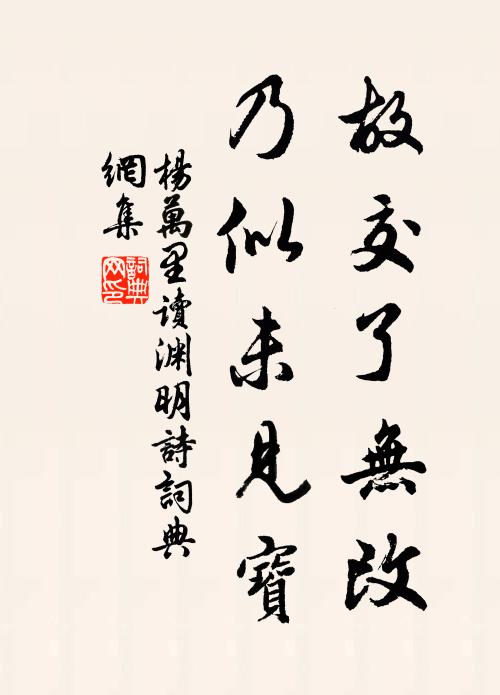 故交了無改
乃似未見寶
楊萬里讀淵明詩詞典
網集
詞典網印